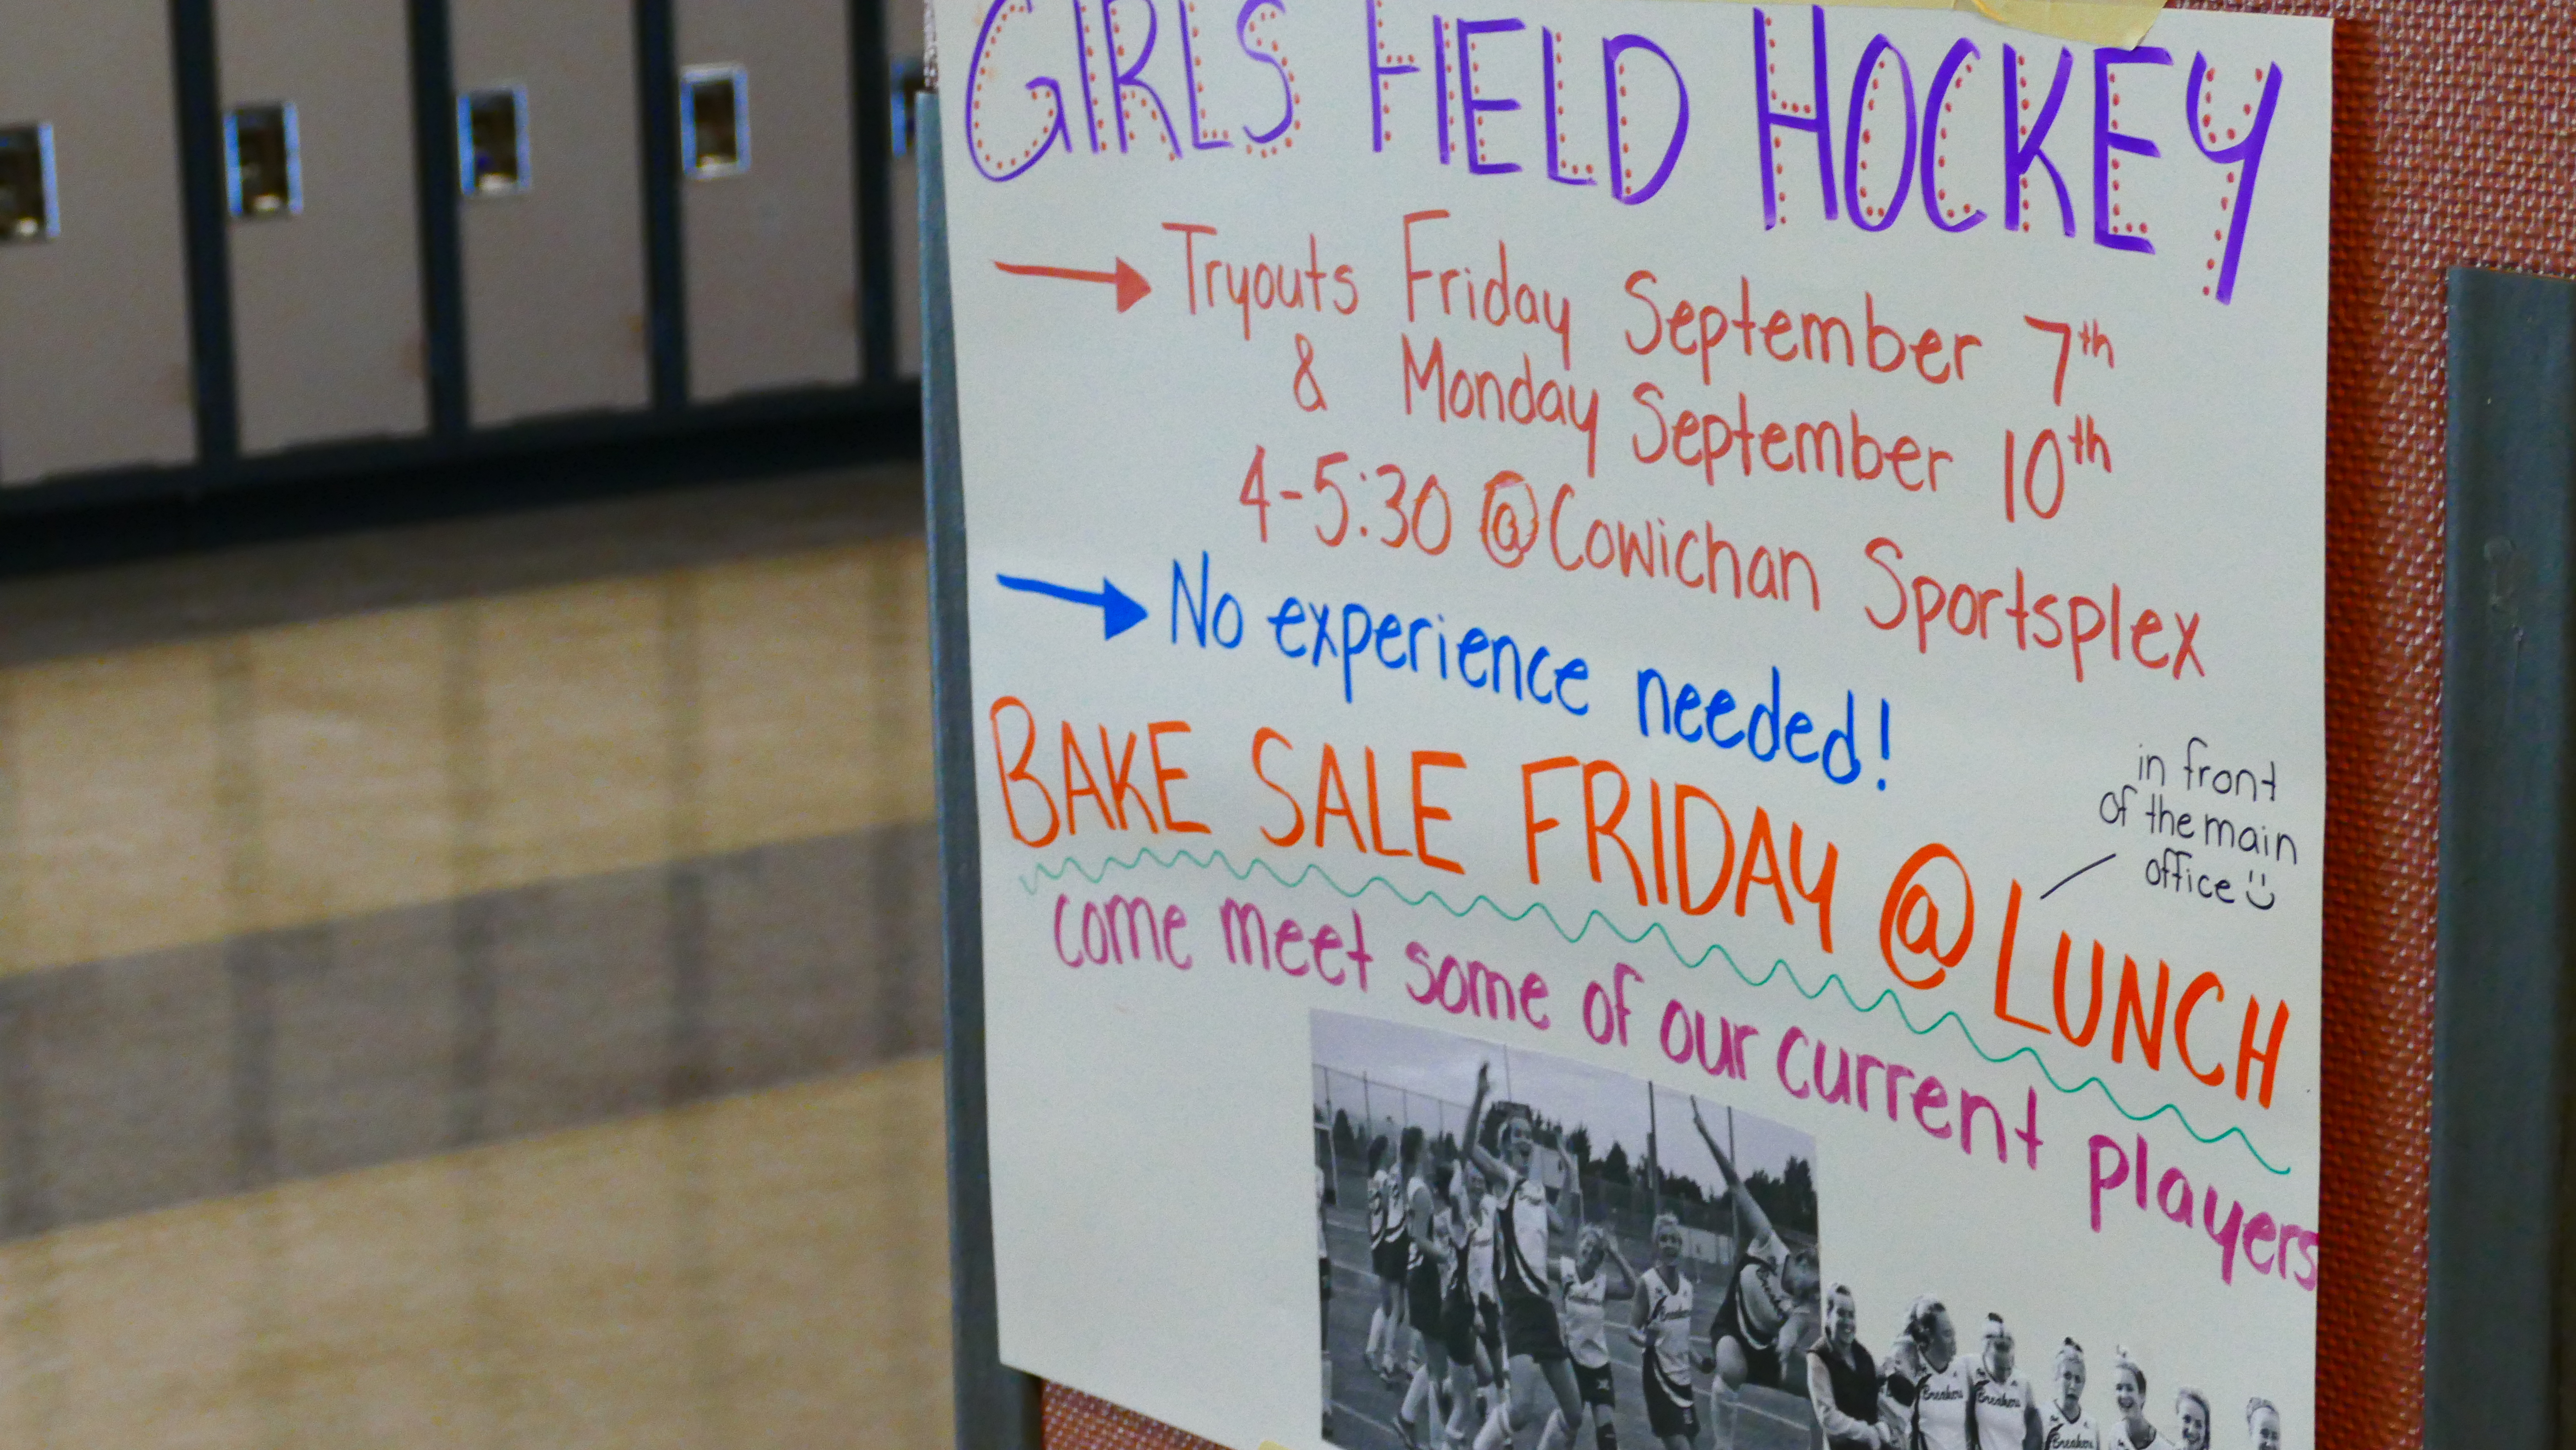 GIRLS FIELD HOCKEY
→ Tryouts Friday September 7th
& Monday September 10th
4-5:30 @ Cowichan Sportsplex
→ No experience needed!
BAKE SALE FRIDAY @ LUNCH
in front
of the main
office
come meet some of our current players
Breakers
Breakers
Breakers
Breakers